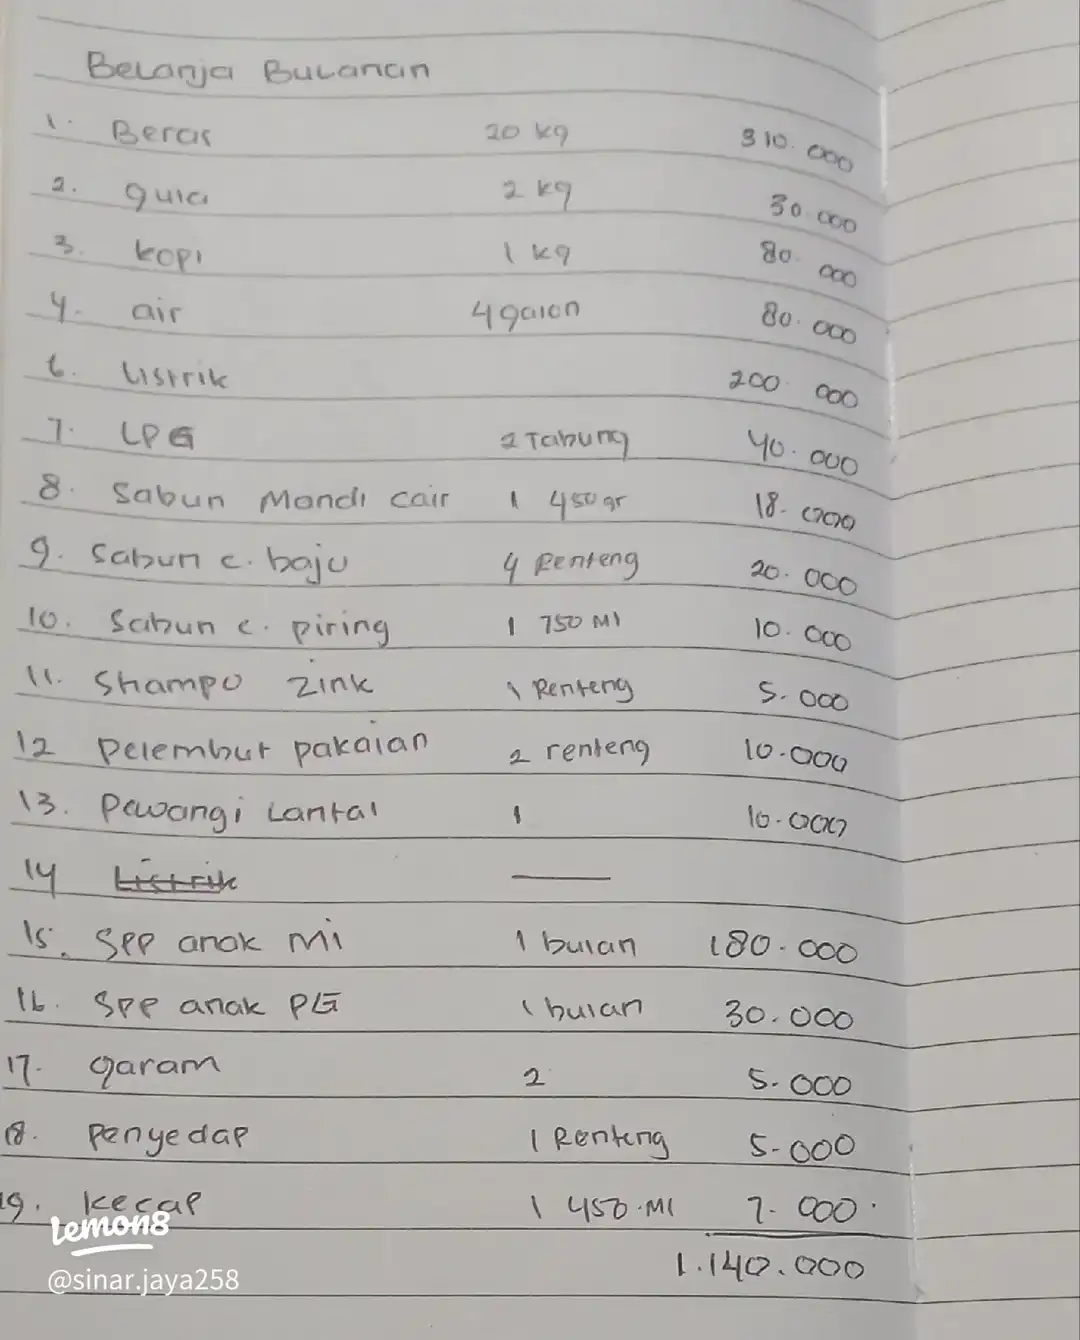 Belanja Bulanan
1. Beras 20 kg 310.000
2. gula 2 kg 30.000
3. kopi 1 kg 80.000
4. air 4 galon 80.000
6. Listrik 200.000
7. LPG 2 Tabung 40.000
8. Sabun Mandi cair 1 450 gr 18.000
9. Sabun c. baju 4 Renteng 20.000
10. Sabun c. piring 1 750 Ml 10.000
11. Shampo zink 1 Renteng 5.000
12 Pelembut pakaian 2 renteng 10.000
13. Pewangi Lantai 1 10.000
14 Listrik —
15. SPP anak Mi 1 bulan 180.000
16. SPP anak PG 1 bulan 30.000
17. garam 2 5.000
18. Penyedap 1 Renteng 5.000
19. kecap 1 450.Ml 7.000
1.140.000
lemon8
@sinar.jaya258